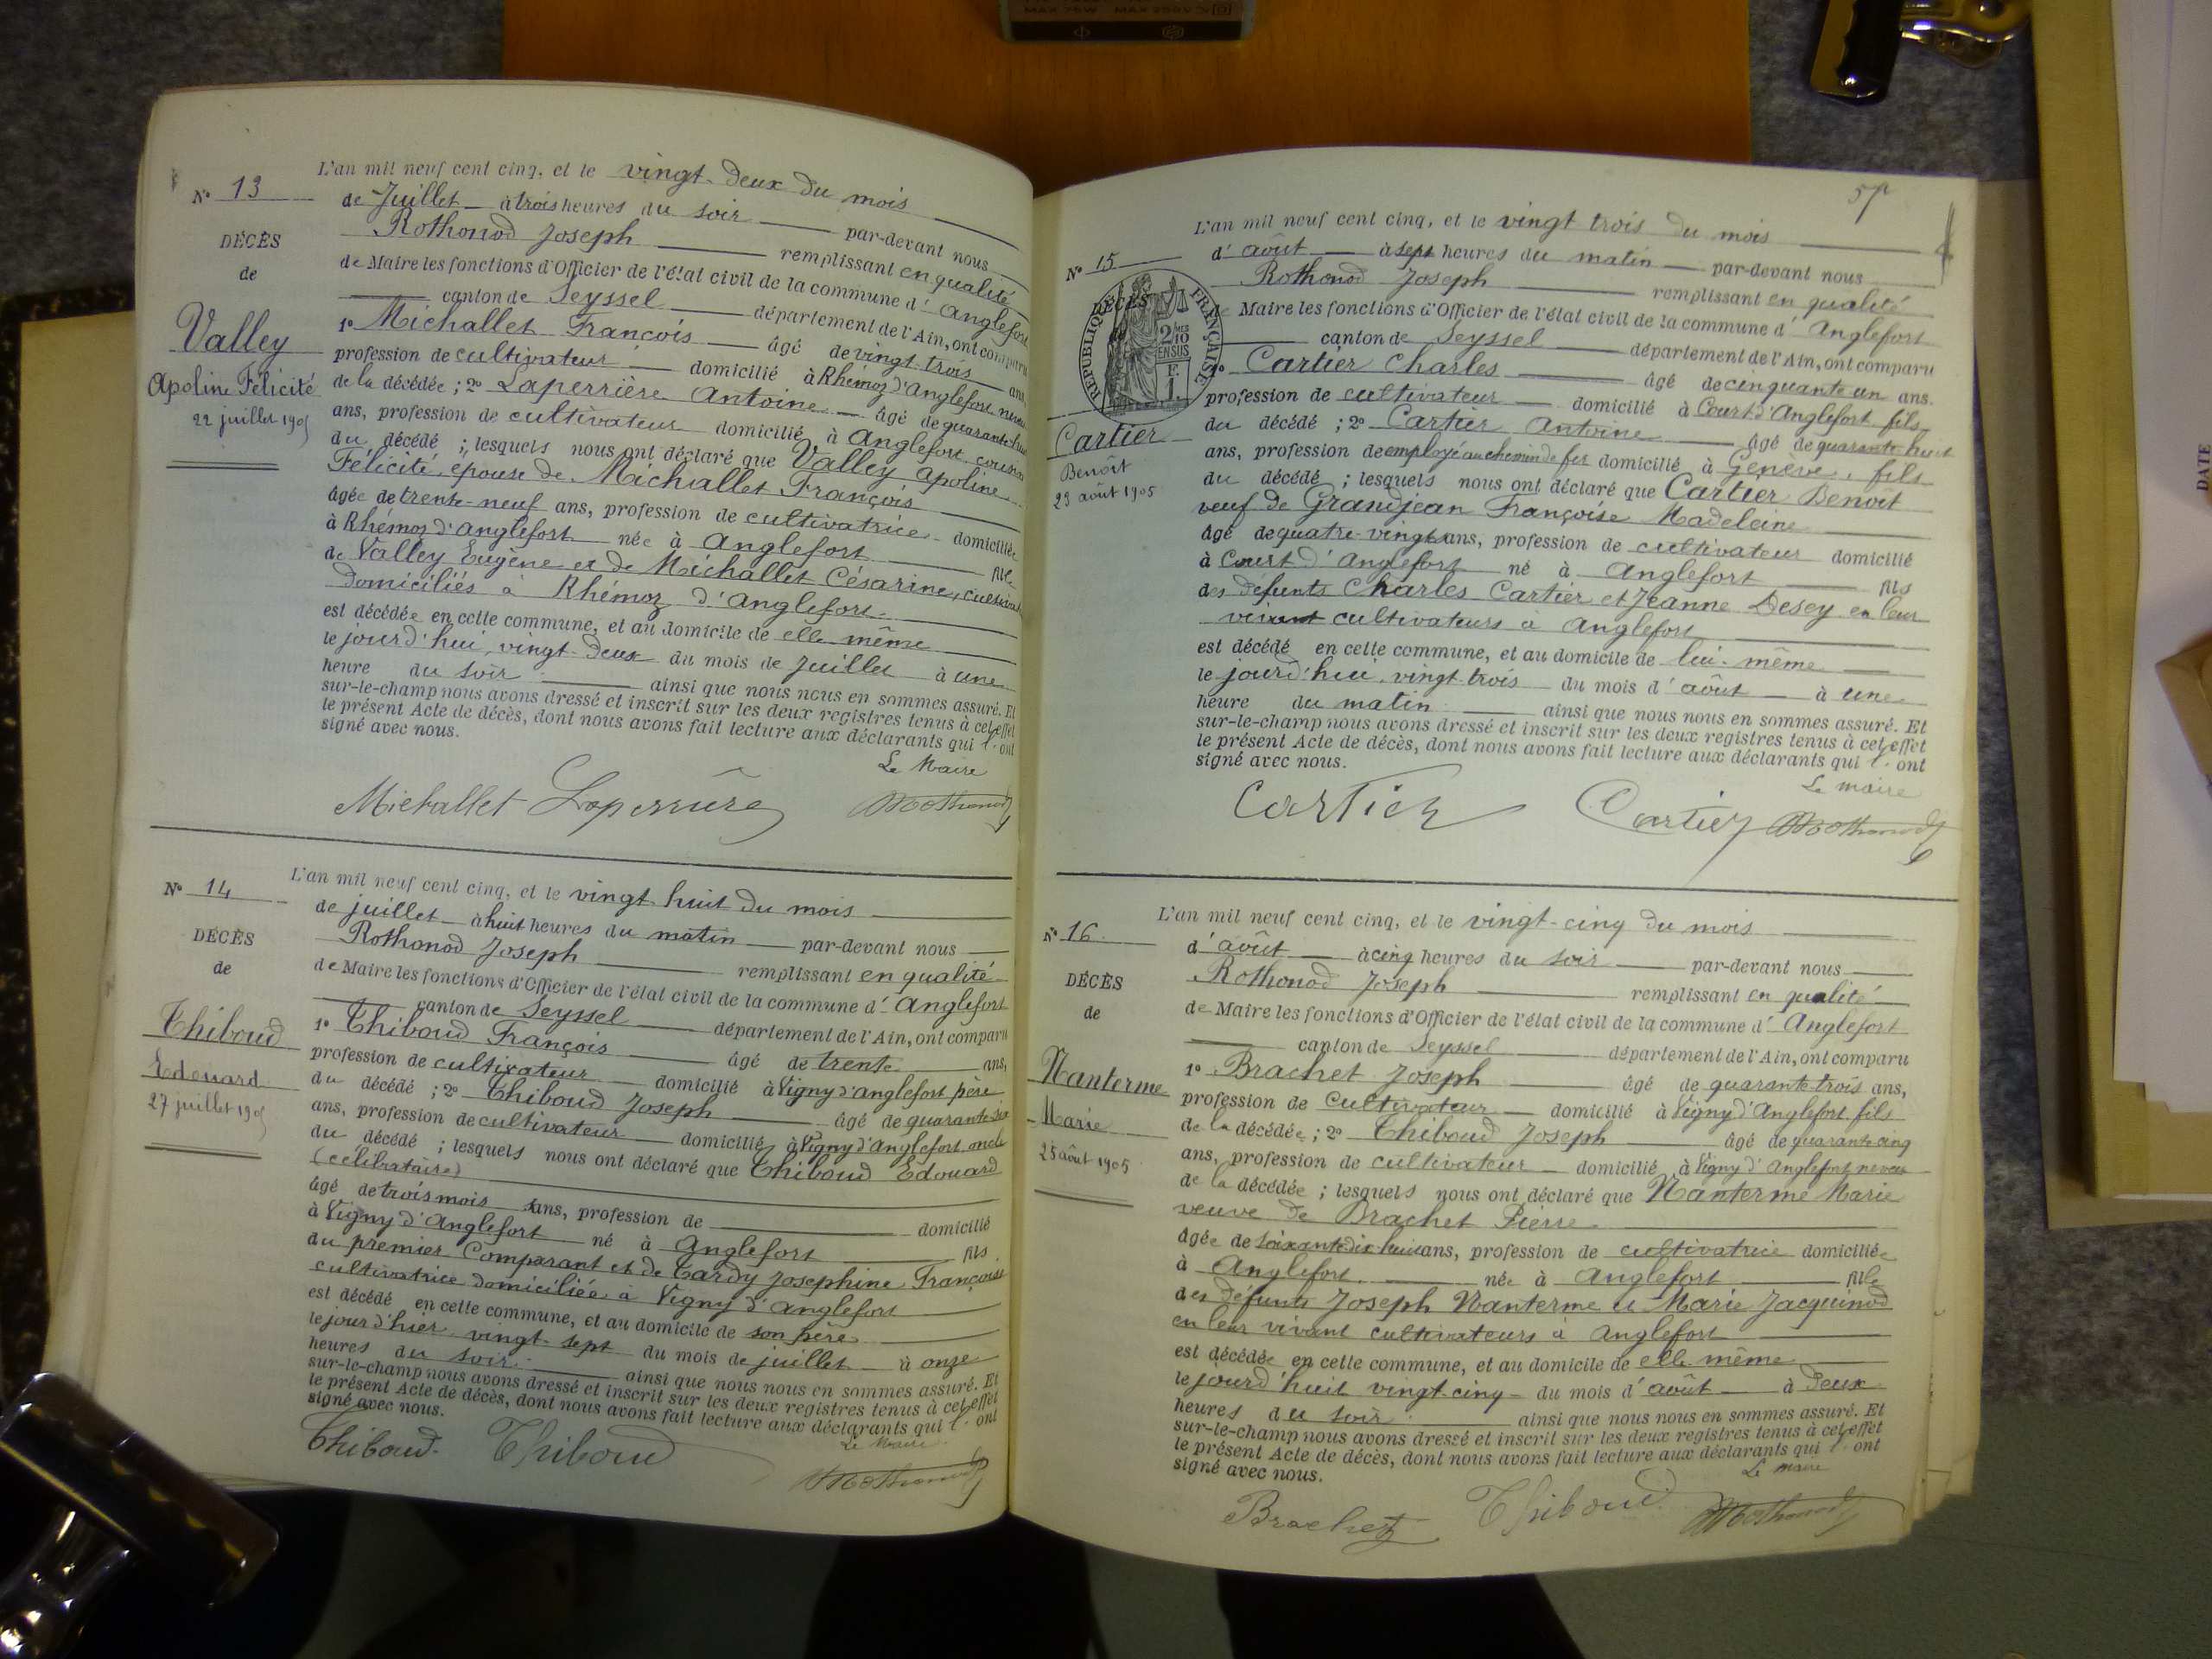 MAX 75W MAX 250V
N° 13
DÉCÈS
de
Valley
Apoline Félicité
22 juillet 1905
L'an mil neuf cent cinq, et le vingt-deux du mois
de Juillet à trois heures du soir par-devant nous
Rothonod Joseph remplissant en qualité
de Maire les fonctions d'Officier de l'état civil de la commune d'Anglefort
canton de Seyssel département de l'Ain, ont comparu
1° Michallet François âgé de vingt-trois ans,
profession de cultivateur domicilié à Rhémoz d'Anglefort neveu
de la décédée ; 2° Laperrière Antoine âgé de quarante-huit
ans, profession de cultivateur domicilié à Anglefort cousin
du décédé ; lesquels nous ont déclaré que Valley Apoline
Félicité, épouse de Michallet François
âgée de trente-neuf ans, profession de cultivatrice domiciliée
à Rhémoz d'Anglefort née à Anglefort fille
de Valley Eugène et de Michallet Césarine, cultivat
domiciliés à Rhémoz d'Anglefort
est décédée en cette commune, et au domicile de elle même
le jourd'hui, vingt-deux du mois de Juillet à une
heure du soir ainsi que nous nous en sommes assuré. Et
sur-le-champ nous avons dressé et inscrit sur les deux registres tenus à cet effet
le présent Acte de décès, dont nous avons fait lecture aux déclarants qui l'ont
signé avec nous.
Le Maire
Michallet Laperrière Rothonod
N° 14
DÉCÈS
de
Thiboud
Edouard
27 juillet 1905
L'an mil neuf cent cinq, et le vingt-huit du mois
de juillet à huit heures du matin par-devant nous
Rothonod Joseph remplissant en qualité
de Maire les fonctions d'Officier de l'état civil de la commune d'Anglefort
canton de Seyssel département de l'Ain, ont comparu
1° Thiboud François âgé de trente ans,
profession de cultivateur domicilié à Vigny d'Anglefort père
du décédé ; 2° Thiboud Joseph âgé de quarante-six
ans, profession de cultivateur domicilié à Vigny d'Anglefort oncle
du décédé ; lesquels nous ont déclaré que Thiboud Edouard
(célibataire)
âgé de trois mois ans, profession de domicilié
à Vigny d'Anglefort né à Anglefort fils
du premier Comparant et de Tardy Josephine Françoise
cultivatrice domiciliée à Vigny d'Anglefort
est décédé en cette commune, et au domicile de son père
le jour d'hier vingt-sept du mois de juillet à onze
heures du soir ainsi que nous nous en sommes assuré. Et
sur-le-champ nous avons dressé et inscrit sur les deux registres tenus à cet effet
le présent Acte de décès, dont nous avons fait lecture aux déclarants qui l'ont
signé avec nous.
Le Maire
Thiboud Thiboud Rothonod
57
N° 15
DÉCÈS
RÉPUBLIQUE FRANÇAISE
2/10 EN SUS
F. 1.
Cartier
Benoît
23 août 1905
L'an mil neuf cent cinq, et le vingt trois du mois
d'août à sept heures du matin par-devant nous
Rothonod Joseph remplissant en qualité
de Maire les fonctions d'Officier de l'état civil de la commune d'Anglefort
canton de Seyssel département de l'Ain, ont comparu
1° Cartier Charles âgé de cinquante un ans.
profession de cultivateur domicilié à Court d'Anglefort fils
du décédé ; 2° Cartier Antoine âgé de quarante-huit
ans, profession de employé au chemin de fer domicilié à Genève, fils
du décédé ; lesquels nous ont déclaré que Cartier Benoit
veuf de Grandjean Françoise Madeleine
âgé de quatre-vingts ans, profession de cultivateur domicilié
à Court d'Anglefort né à Anglefort fils
des défunts Charles Cartier et Jeanne Desey en leur
vivant cultivateurs à Anglefort
est décédé en cette commune, et au domicile de lui-même
le jourd'hui, vingt-trois du mois d'août à une
heure du matin ainsi que nous nous en sommes assuré. Et
sur-le-champ nous avons dressé et inscrit sur les deux registres tenus à cet effet
le présent Acte de décès, dont nous avons fait lecture aux déclarants qui l'ont
signé avec nous.
Le maire
Cartier Cartier Rothonod
N° 16
DÉCÈS
de
Nanterme
Marie
25 août 1905
L'an mil neuf cent cinq, et le vingt-cinq du mois
d'août à cinq heures du soir par-devant nous
Rothonod Joseph remplissant en qualité
de Maire les fonctions d'Officier de l'état civil de la commune d'Anglefort
canton de Seyssel département de l'Ain, ont comparu
1° Brachet Joseph âgé de quarante trois ans,
profession de Cultivateur domicilié à Vigny d'Anglefort fils
de la décédée ; 2° Thiboud Joseph âgé de quarante cinq
ans, profession de cultivateur domicilié à Vigny d'Anglefort neveu
de la décédée ; lesquels nous ont déclaré que Nanterme Marie
veuve de Brachet Pierre
âgée de soixante dix huit ans, profession de cultivatrice domiciliée
à Anglefort née à Anglefort fille
des défunts Joseph Nanterme et Marie Jacquinod
en leur vivant cultivateurs à Anglefort
est décédée en cette commune, et au domicile de elle même
le jourd'huit vingt-cinq du mois d'août à deux
heures du soir ainsi que nous nous en sommes assuré. Et
sur-le-champ nous avons dressé et inscrit sur les deux registres tenus à cet effet
le présent Acte de décès, dont nous avons fait lecture aux déclarants qui l'ont
signé avec nous.
Le maire
Brachet Thiboud Rothonod
DATE